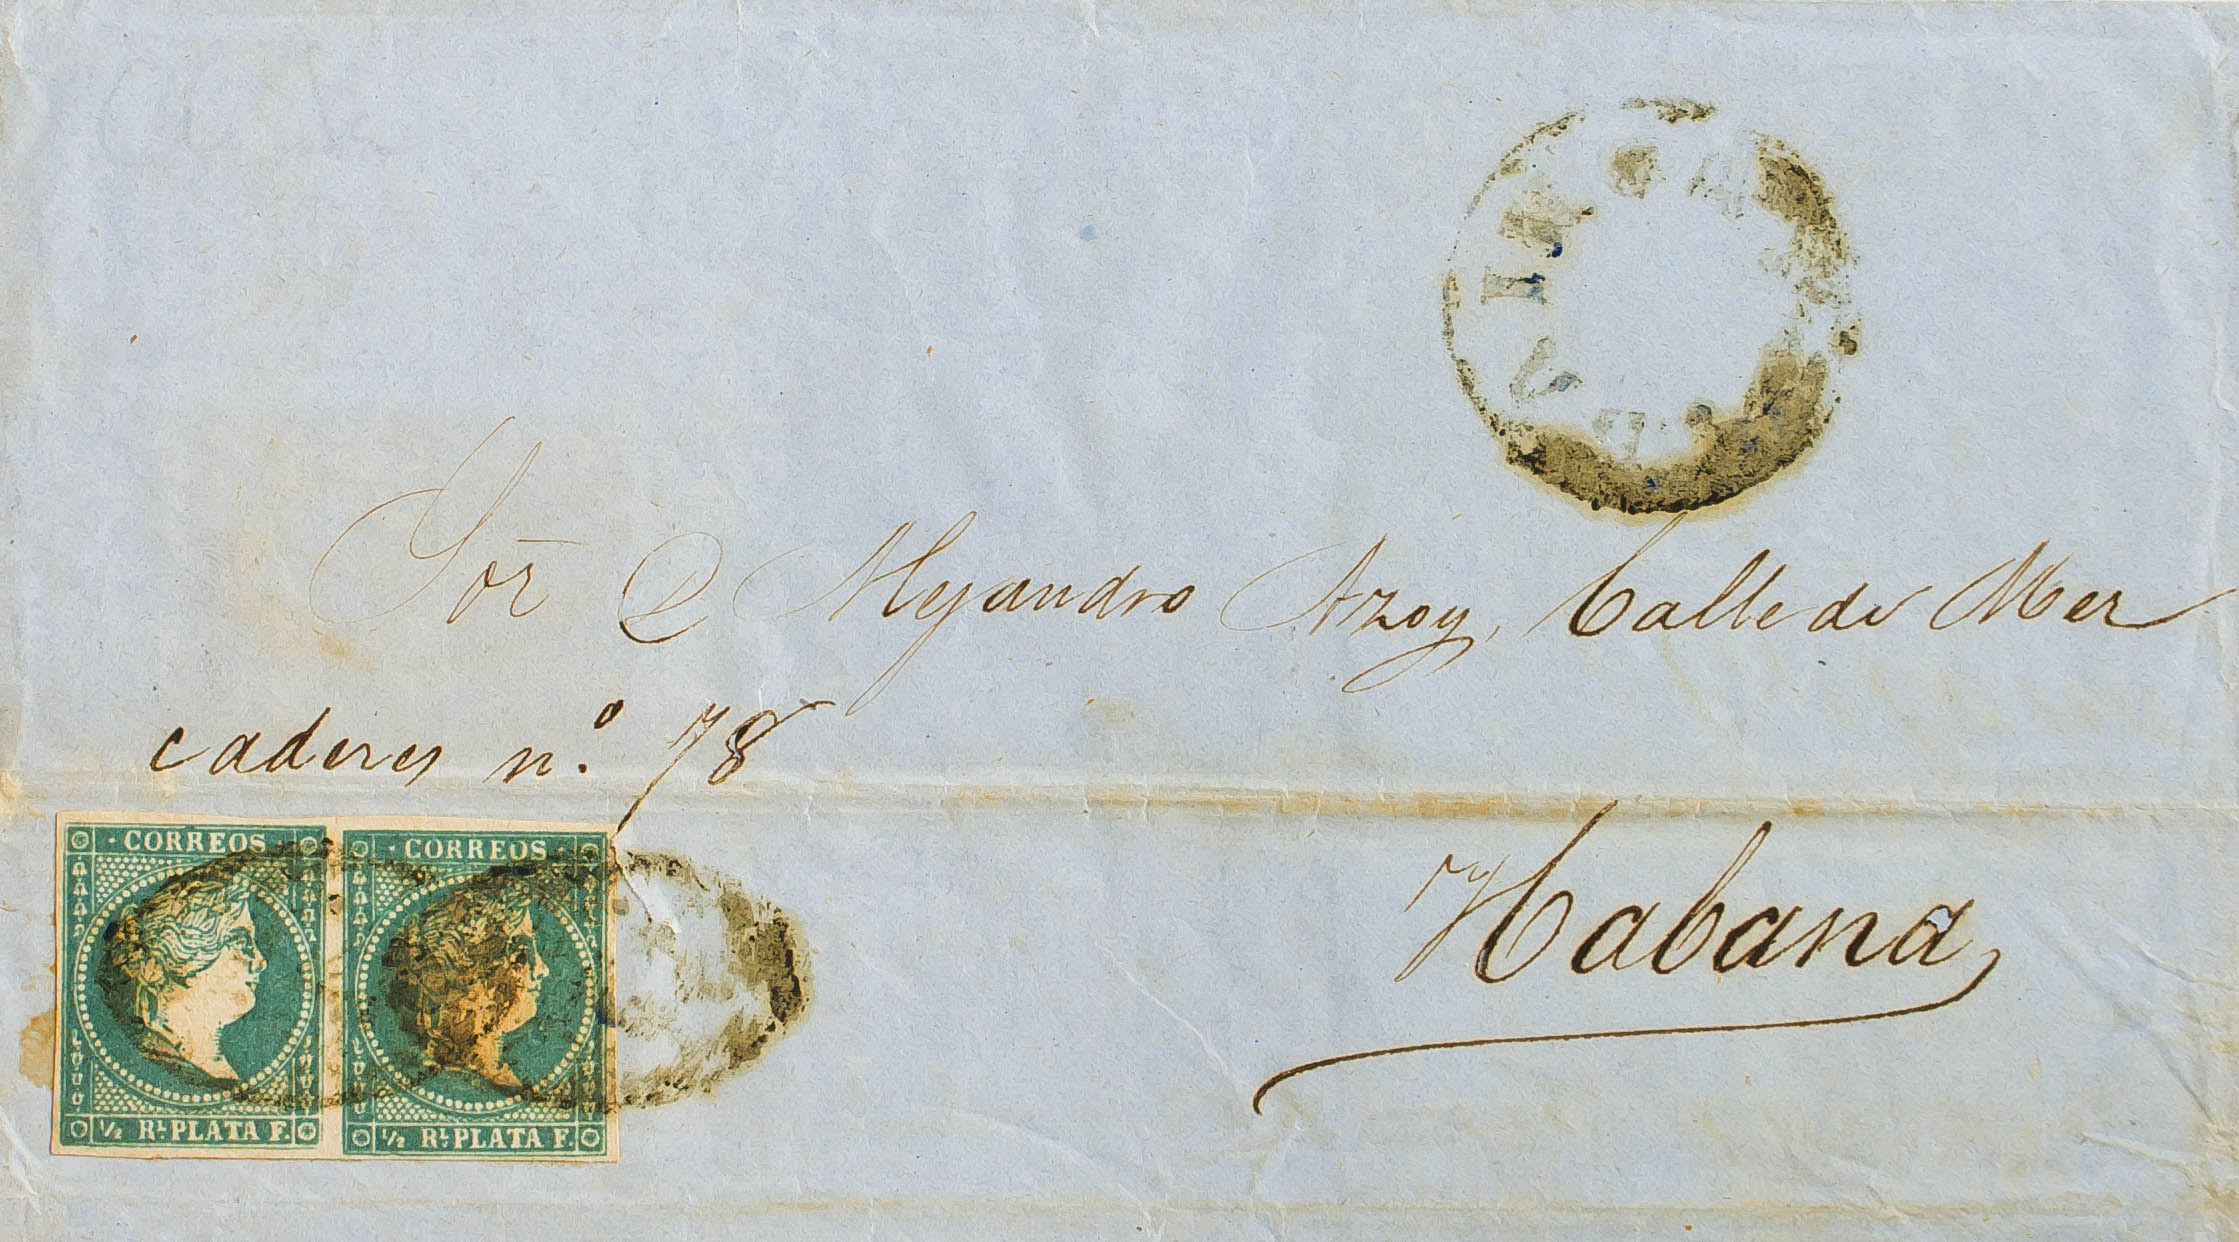 Sor D Alejandro Azoy, Calle de Mer
caderes n.º 78
Habana
CORREOS
½ Rl. PLATA F.
CORREOS
½ Rl. PLATA F.